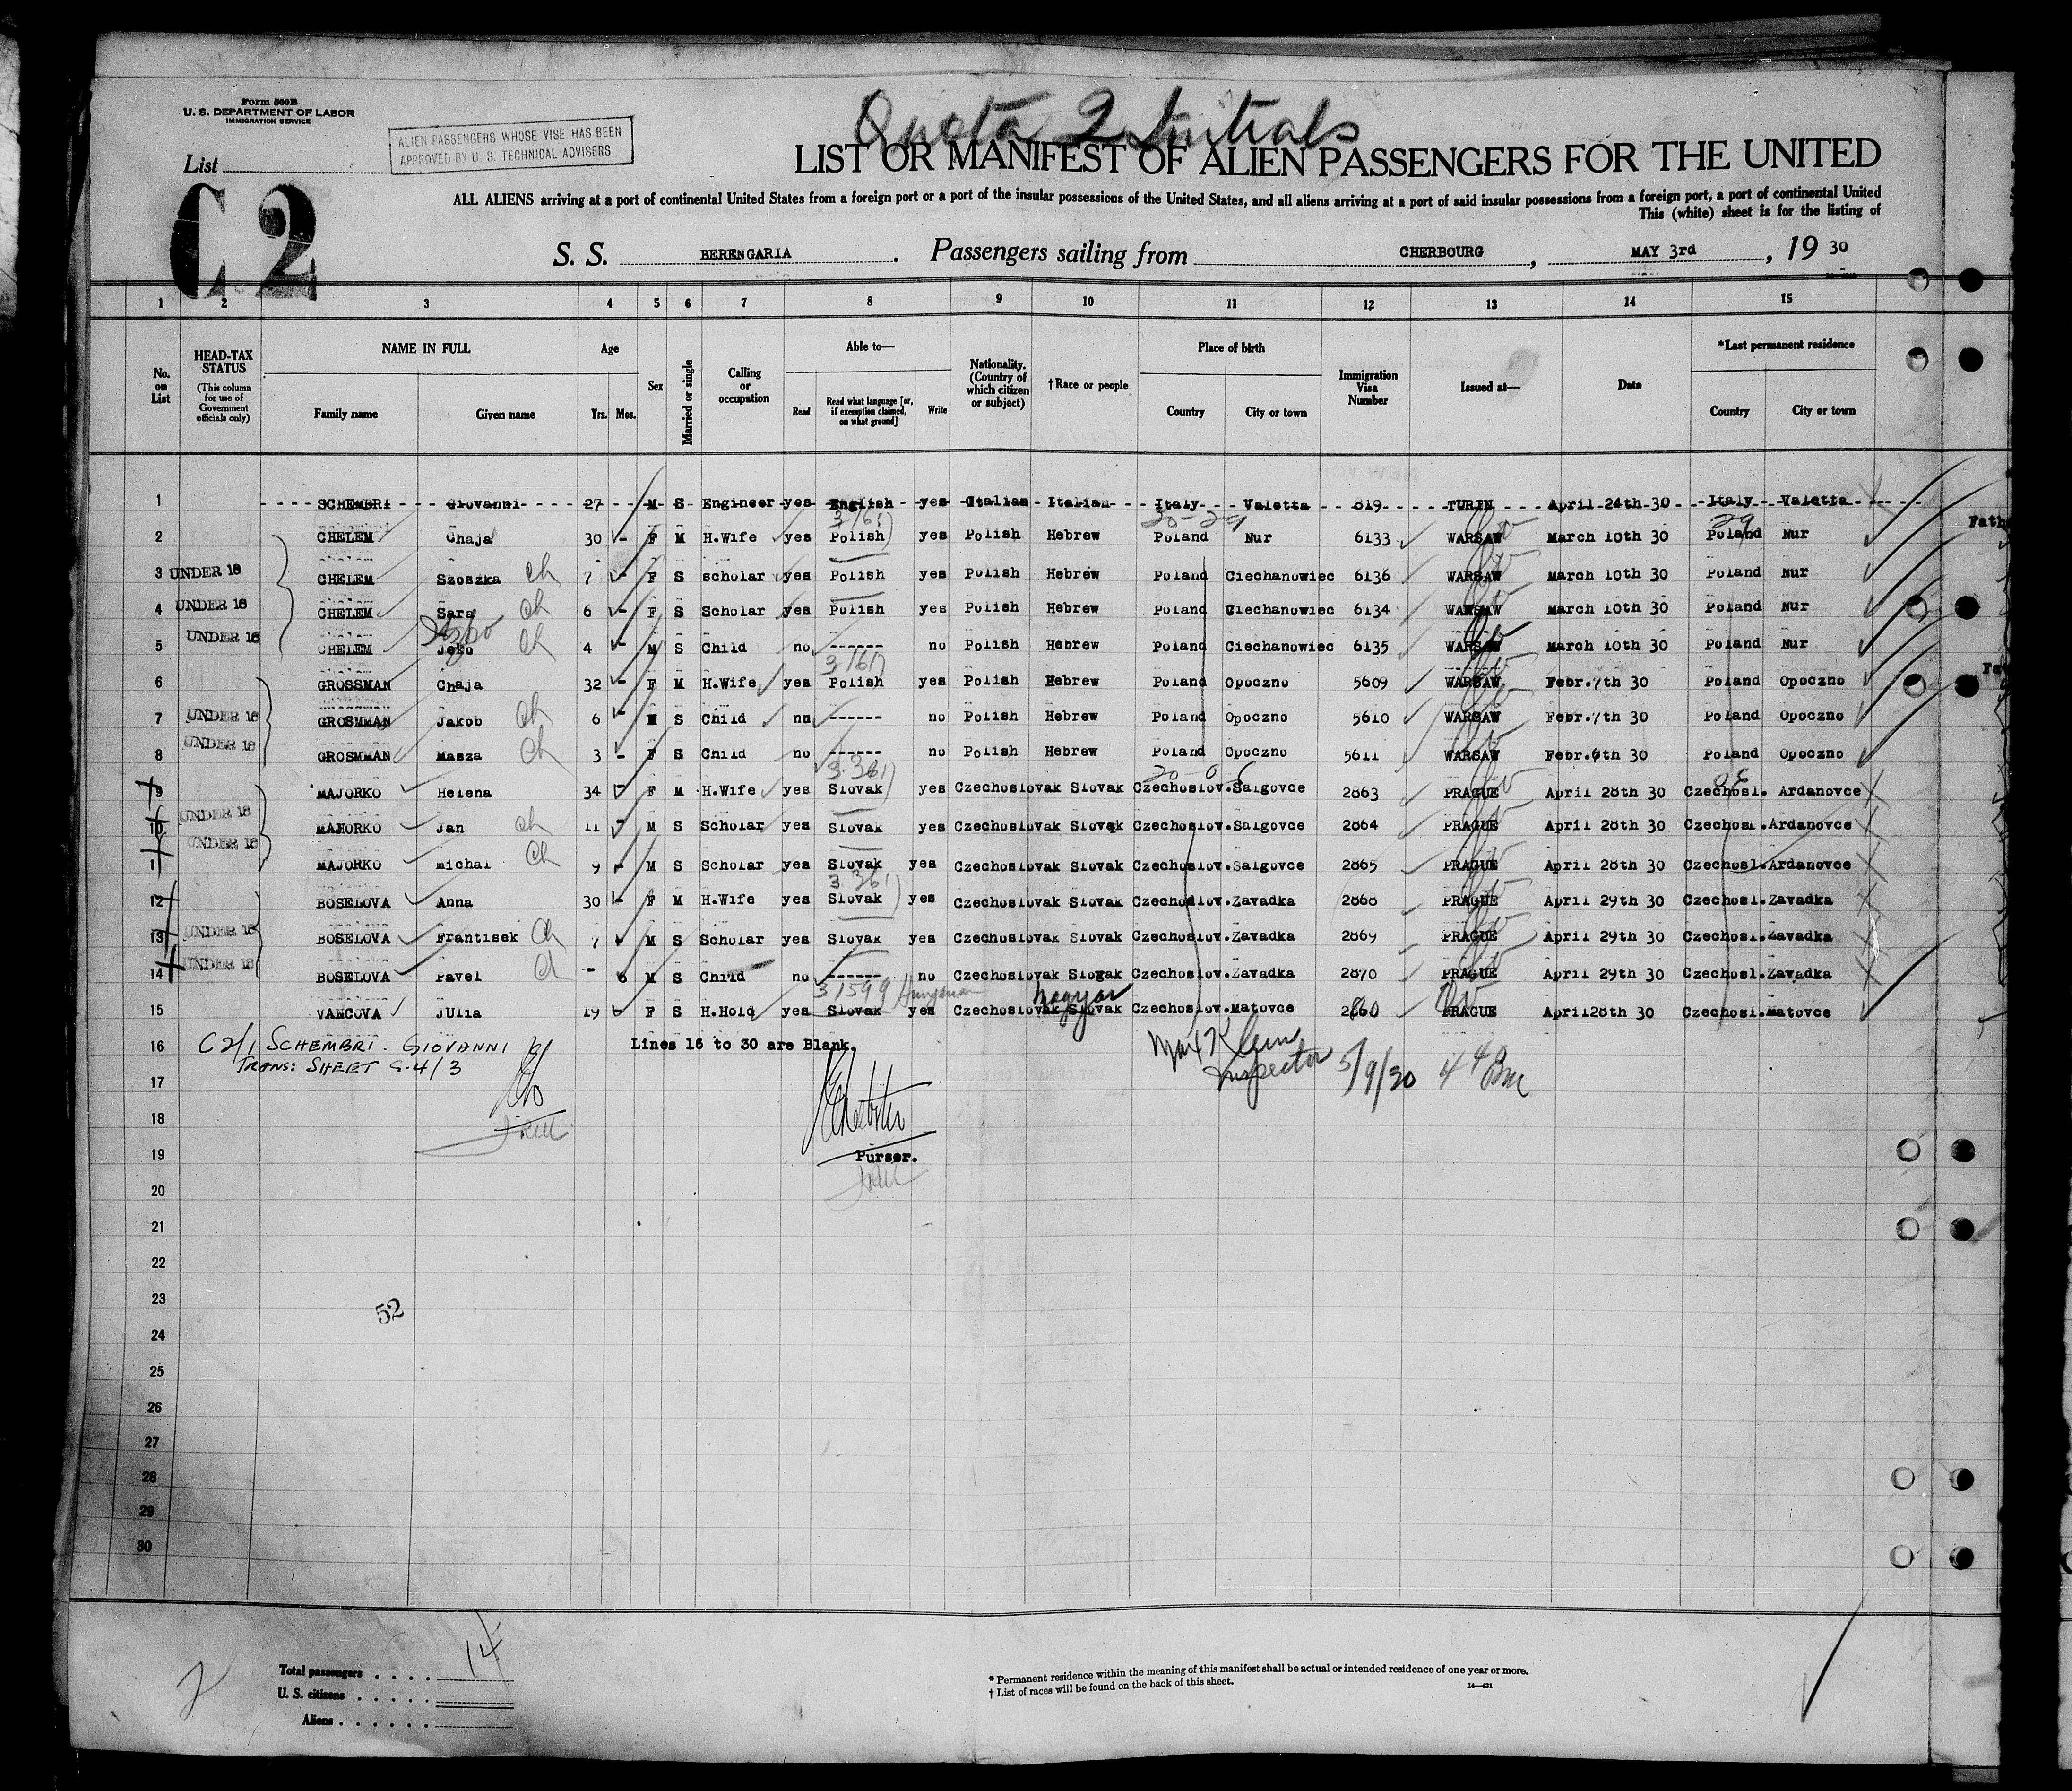 Quota 2 Initials
Form 500B
U. S. DEPARTMENT OF LABOR
IMMIGRATION SERVICE
ALIEN PASSENGERS WHOSE VISE HAS BEEN
APPROVED BY U. S. TECHNICAL ADVISERS
List
C 2
LIST OR MANIFEST OF ALIEN PASSENGERS FOR THE UNITED
ALL ALIENS arriving at a port of continental United States from a foreign port or a port of the insular possessions of the United States, and all aliens arriving at a port of said insular possessions from a foreign port, a port of continental United
This (white) sheet is for the listing of
S. S. BERENGARIA. Passengers sailing from CHERBOURG, MAY 3rd, 19 30
1 2 3 4 5 6 7 8 9 10 11 12 13 14 15
No. on List
HEAD-TAX STATUS (This column for use of Government officials only)
NAME IN FULL
Family name Given name
Age
Yrs. Mos.
Sex
Married or single
Calling or occupation
Able to—
Read Read what language [or, if exemption claimed, on what ground] Write
Nationality. (Country of which citizen or subject)
†Race or people
Place of birth
Country City or town
Immigration Visa Number
Issued at—
Date
*Last permanent residence
Country City or town
1 SCHEMBRI Giovanni 27 M S Engineer yes English yes Italian Italian Italy Valetta 819 TURIN April 24th 30 Italy Valetta
3/61 20-29 29
2 CHELEM Chaja 30 - F M H.Wife yes Polish yes Polish Hebrew Poland Nur 6133 WARSAW March 10th 30 Poland Nur
3 UNDER 16 CHELEM Szoszka ch 7 - F S scholar yes Polish yes Polish Hebrew Poland Ciechanowiec 6136 WARSAW March 10th 30 Poland Nur
4 UNDER 16 CHELEM Sara ch 6 - F S Scholar yes Polish yes Polish Hebrew Poland Ciechanowiec 6134 WARSAW March 10th 30 Poland Nur
5 UNDER 16 CHELEM Jcko ch 4 - M S Child no ------ no Polish Hebrew Poland Ciechanowiec 6135 WARSAW March 10th 30 Poland Nur
3/61
6 GROSSMAN Chaja 32 - F M H.Wife yes Polish yes Polish Hebrew Poland Opoczno 5609 WARSAW Febr.7th 30 Poland Opoczno
7 UNDER 16 GROSMMAN Jakob ch 6 - M S Child no ------ no Polish Hebrew Poland Opoczno 5610 WARSAW Febr.7th 30 Poland Opoczno
8 UNDER 16 GROSMMAN Masza ch 3 - F S Child no ------ no Polish Hebrew Poland Opoczno 5611 WARSAW Febr.6th 30 Poland Opoczno
3.361
9 MAJORKO Helena 34 - F M H.Wife yes Slovak yes Czechoslovak Slovak Czechoslov. Salgovce 2863 PRAGUE April 28th 30 Czechosl. Ardanovce
10 UNDER 16 MAHORKO Jan ch 11 - M S Scholar yes Slovak yes Czechoslovak Slovak Czechoslov. Salgovce 2864 PRAGUE April 28th 30 Czechosl. Ardanovce
11 UNDER 16 MAJORKO Michal ch 9 - M S Scholar yes Slovak yes Czechoslovak Slovak Czechoslov. Salgovce 2865 PRAGUE April 28th 30 Czechosl. Ardanovce
3.361
12 BOSELOVA Anna 30 - F M H.Wife yes Slovak yes Czechoslovak Slovak Czechoslov. Zavadka 2868 PRAGUE April 29th 30 Czechosl. Zavadka
13 UNDER 16 BOSELOVA Frantisek ch 7 M S Scholar yes Slovak yes Czechoslovak Slovak Czechoslov. Zavadka 2869 PRAGUE April 29th 30 Czechosl. Zavadka
14 UNDER 16 BOSELOVA Pavel ch - 6 M S Child no ------ no Czechoslovak Slovak Czechoslov. Zavadka 2870 PRAGUE April 29th 30 Czechosl. Zavadka
31599 Hungarian Magyar
15 VANCOVA Julia 19 F S H.Hold yes Slovak yes Czechoslovak Slovak Czechoslov. Matovce 2860 PRAGUE April28th 30 Czechosl. Matovce
16 C2/1 SCHEMBRI. GIOVANNI Lines 16 to 30 are Blank.
TRANS: SHEET G.4/3
Max Klein
Inspector 5/9/30
17
18
19 Purser.
20
21
22
23
52
24
25
26
27
28
29
30
2
Total passengers . . . . 14
U. S. citizens . . . . .
Aliens . . . . . .
* Permanent residence within the meaning of this manifest shall be actual or intended residence of one year or more.
† List of races will be found on the back of this sheet.
14—421